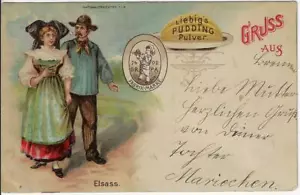 Liebig's
PUDDING
Pulver.
GRUSS
AUS
Liebe Mutter
Herzlichen Gruss
von deiner
Tochter
Mariechen.
Elsass.